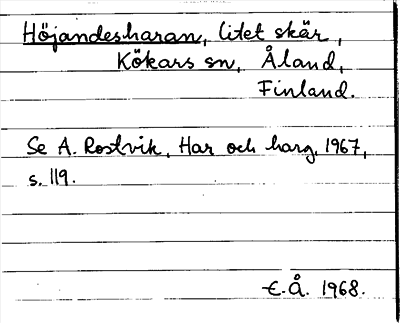 Höjandesharan, litet skär,
Kökars sn, Åland,
Finland.
Se A. Rostvik, Har och harg, 1967,
s. 119.
E.Å. 1968.